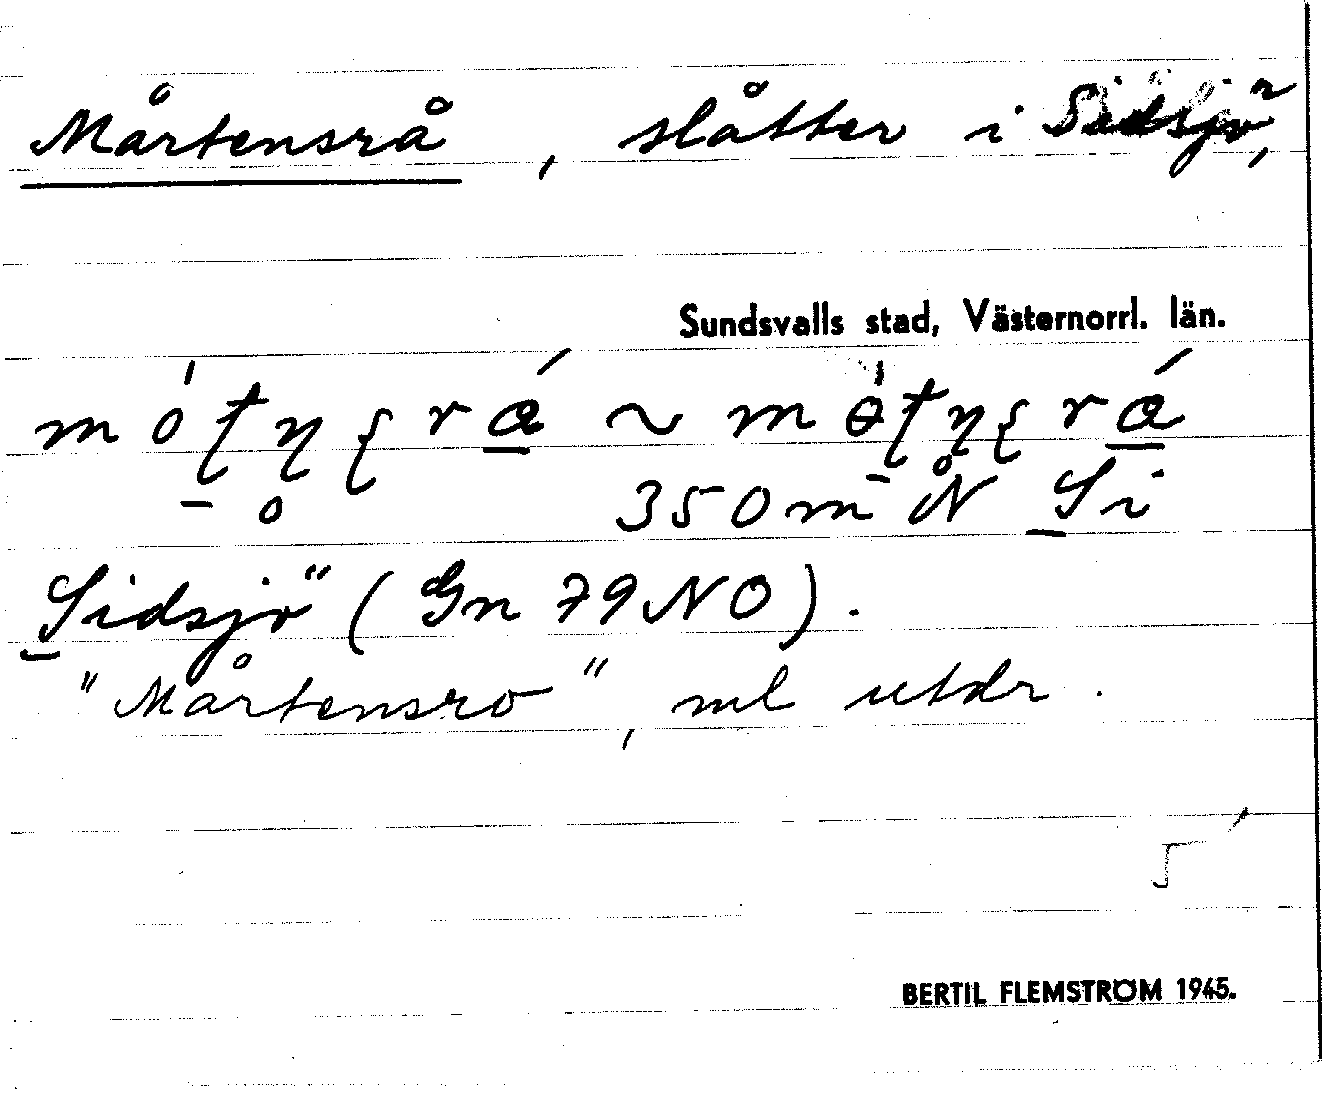 Mårtensrå, slåtter i Sidsjö,
Sundsvalls stad, Västernorrl. län.
350 m Å N Si
Sidsjö (Gn 79 NO).
"Mårtensro", ml utdr.
BERTIL FLEMSTRÖM 1945.